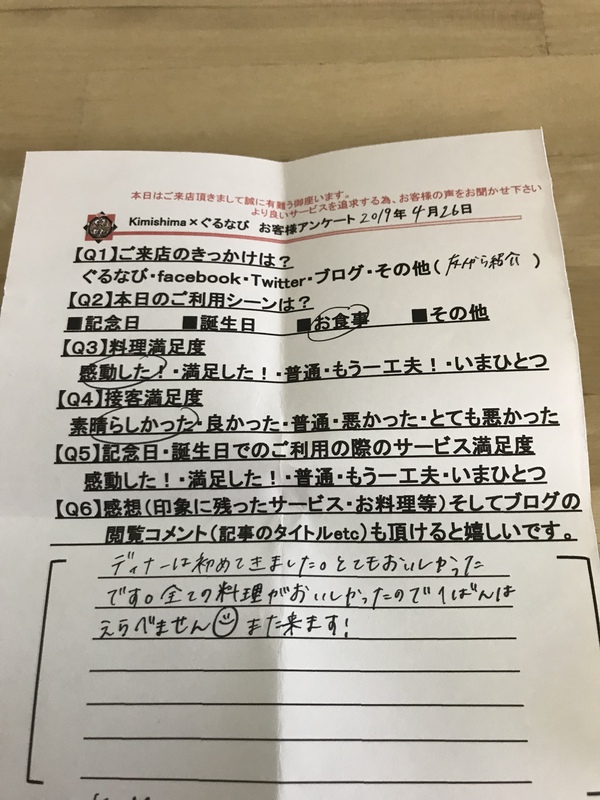 本日はご来店頂きまして誠に有難う御座います。
より良いサービスを追求する為、お客様の声をお聞かせ下さい
Kimishima×ぐるなび お客様アンケート 2019年 4月26日
【Q1】ご来店のきっかけは?
ぐるなび・facebook・Twitter・ブログ・その他( 紹介 )
【Q2】本日のご利用シーンは?
■記念日 ■誕生日 ■お食事 ■その他
【Q3】料理満足度
感動した!・満足した!・普通・もう一工夫!・いまひとつ
【Q4】接客満足度
素晴らしかった・良かった・普通・悪かった・とても悪かった
【Q5】記念日・誕生日でのご利用の際のサービス満足度
感動した!・満足した!・普通・もう一工夫・いまひとつ
【Q6】感想(印象に残ったサービス・お料理等)そしてブログの
閲覧コメント(記事のタイトルetc)も頂けると嬉しいです。
ディナーは初めてきました。とてもおいしかった
です。全ての料理がおいしかったので1ばんは
えらべません また来ます!